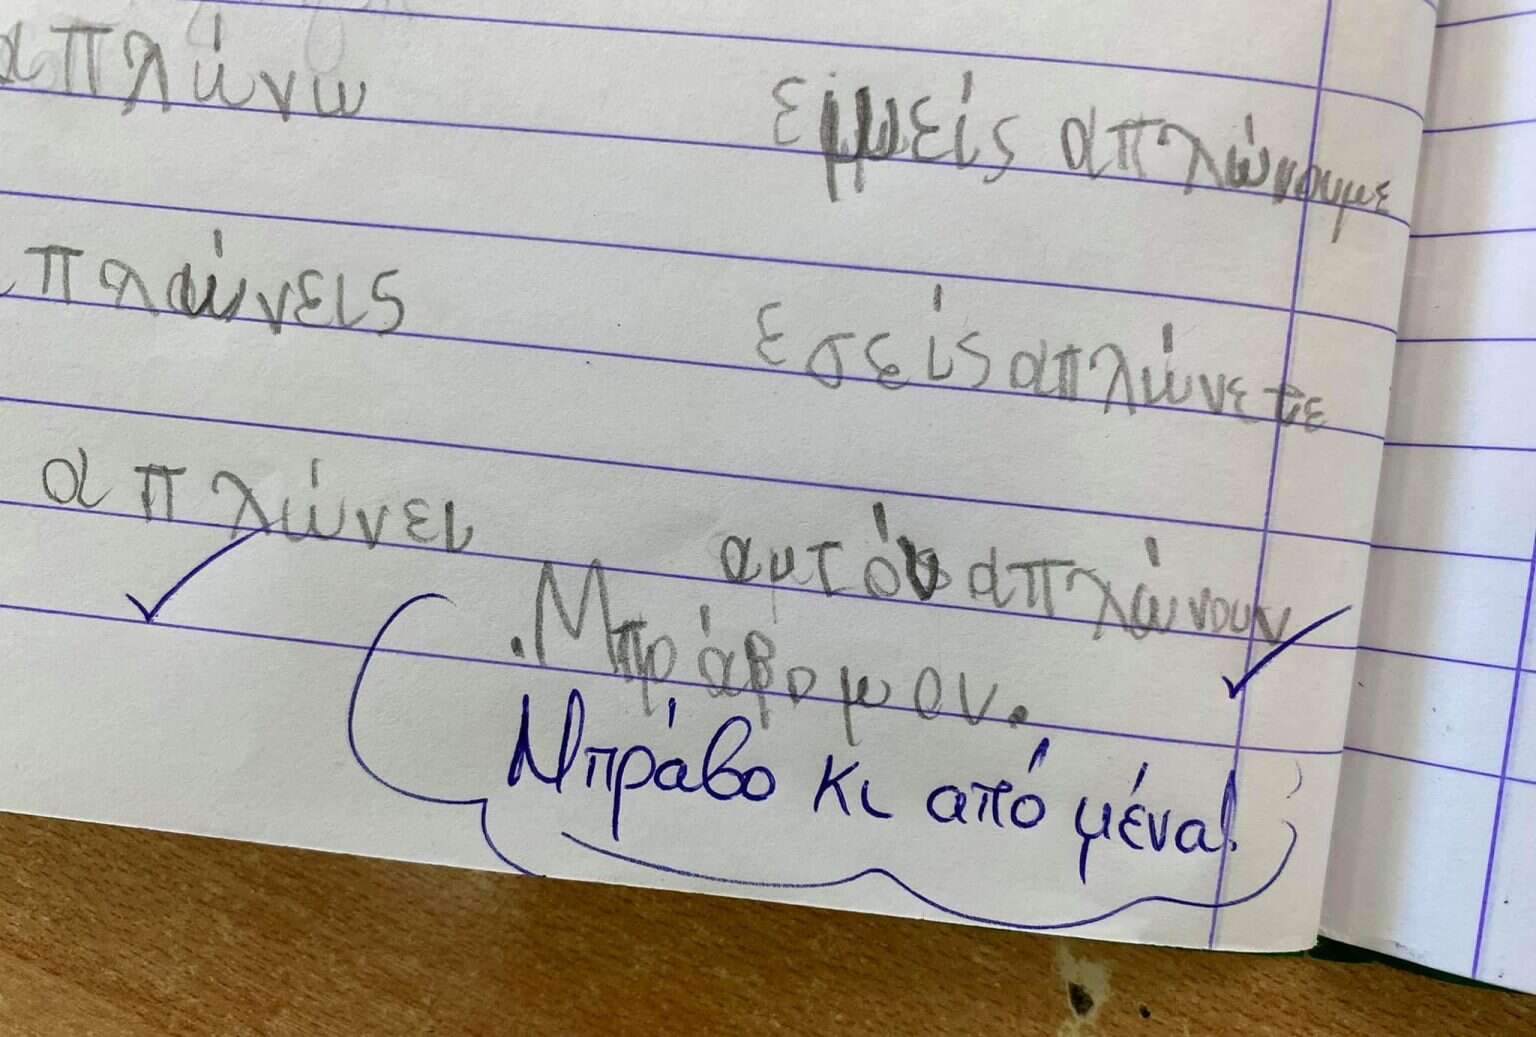 απλώνω εμείς απλώνουμε
πλώνεις εσείς απλώνετε
απλώνει αυτόι απλώνουν
.Μπράβο μου.
Μπράβο κι από μένα!